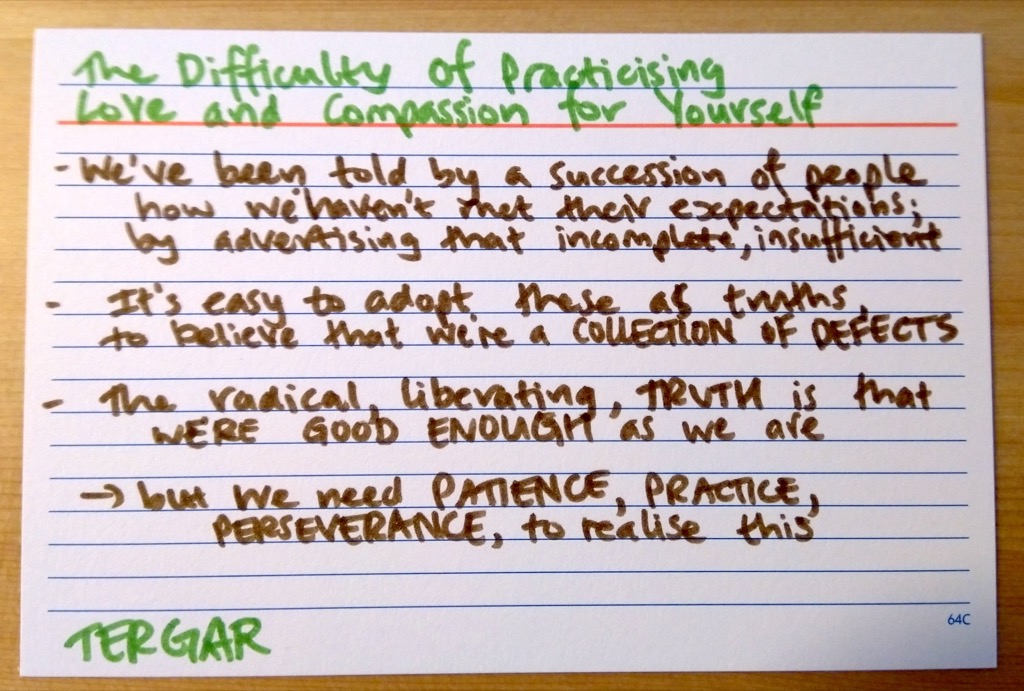 The Difficulty of Practicising
Love and Compassion for Yourself
- We've been told by a succession of people
how we haven't met their expectations;
by advertising that incomplete, insufficient
- It's easy to adopt these as truths,
to believe that we're a COLLECTION OF DEFECTS
- The radical, liberating, TRUTH is that
WE'RE GOOD ENOUGH as we are
→ but we need PATIENCE, PRACTICE,
PERSEVERANCE, to realise this
64C
TERGAR